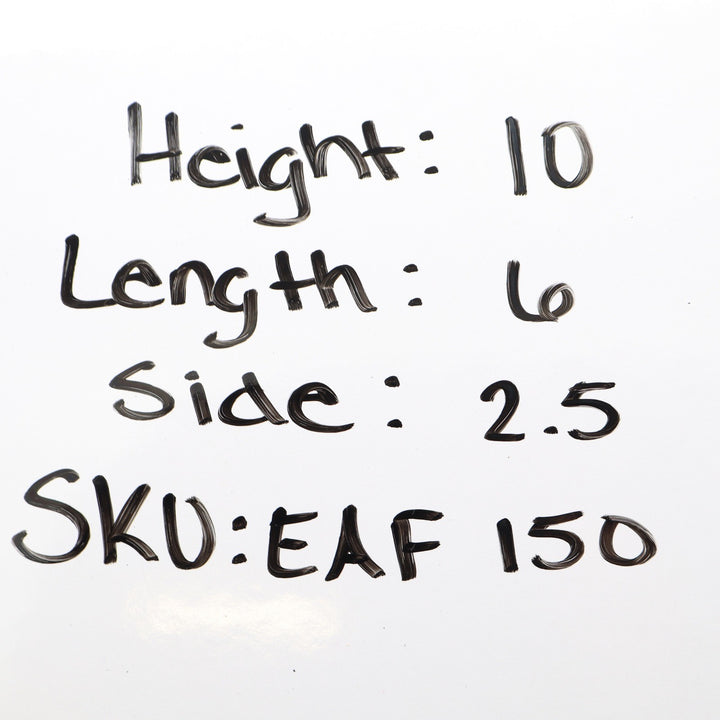 Height: 10
Length: 6
Side: 2.5
SKU: EAF 150